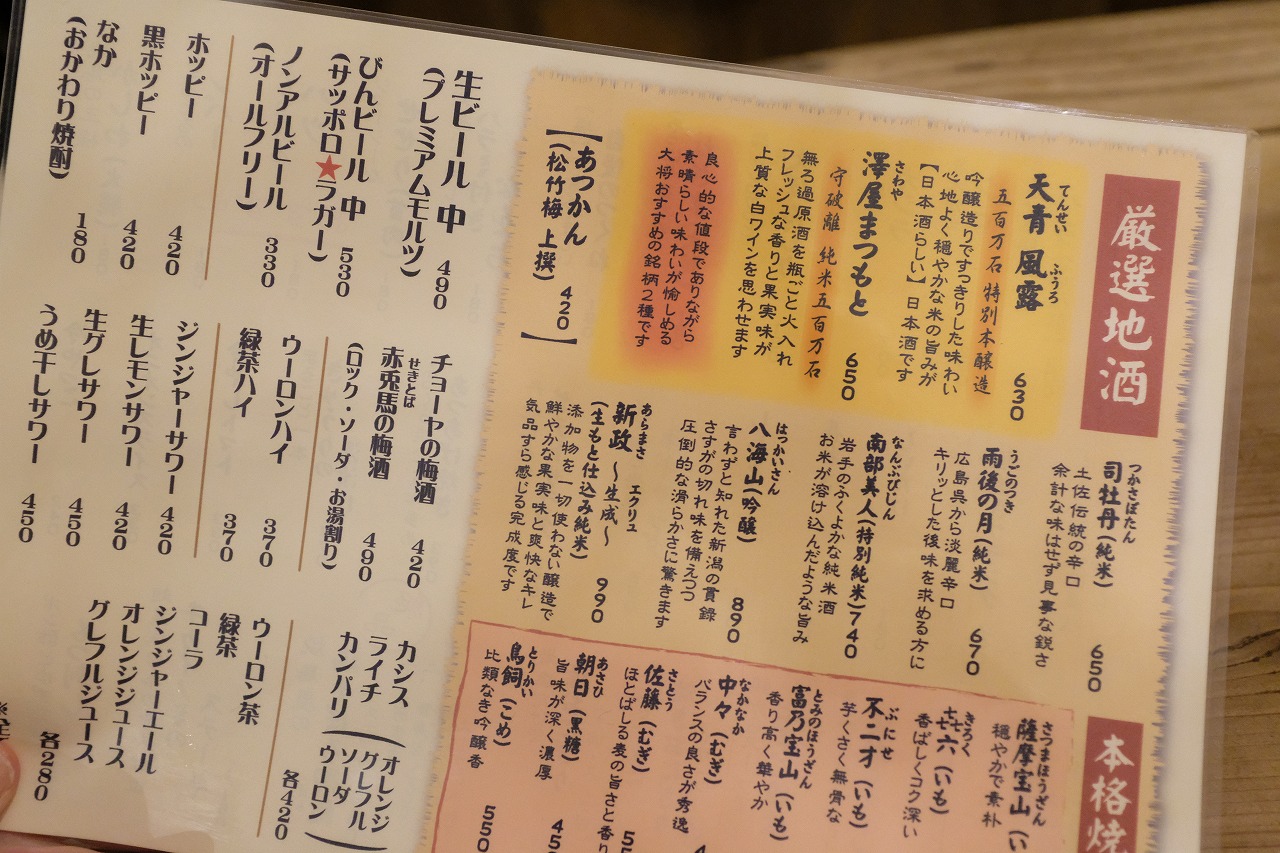 厳選地酒
てんせい ふうろ
天青 風露 630
五百万石 特別本醸造
吟醸造りですっきりした味わい
心地よく穏やかな米の旨みが
【日本酒らしい】日本酒です
さわや
澤屋まつもと 650
守破離 純米五百万石
無ろ過原酒を瓶ごと火入れ
フレッシュな香りと果実味が
上質な白ワインを思わせます
良心的な値段でありながら
素晴らしい味わいが愉しめる
大将おすすめの銘柄2種です
【あつかん
(松竹梅 上撰) 420】
つかさぼたん
司牡丹(純米) 650
土佐伝統の辛口
余計な味はせず見事な鋭さ
うごのつき
雨後の月(純米) 670
広島呉から淡麗辛口
キリッとした後味を求める方に
なんぶびじん
南部美人(特別純米)740
岩手のふくよかな純米酒
お米が溶け込んだような旨み
はっかいさん
八海山(吟醸) 890
言わずと知れた新潟の貫録
さすがの切れ味を備えつつ
圧倒的な滑らかさに驚きます
あらまさ エクリュ
新政 〜生成〜 990
(生もと仕込み純米)
添加物を一切使わない醸造で
鮮やかな果実味と爽快なキレ
気品すら感じる完成度です
本格焼
さつまほうざん
薩摩宝山(い
穏やかで素朴
きろく
㐂六(いも)
香ばしくコク深い
ぶにせ
不二才(いも)
芋くさく無骨な
とみのほうざん
富乃宝山(いも)
香り高く華やか
なかなか
中々(むぎ)
バランスの良さが秀逸
さとう
佐藤(むぎ)
ほとばしる麦の旨さと香り
あさひ
朝日(黒糖)
旨味が深く濃厚
とりかい
鳥飼(こめ) 550
比類なき吟醸香
生ビール 中 490
(プレミアムモルツ)
びんビール 中 530
(サッポロ★ラガー)
ノンアルビール 330
(オールフリー)
ホッピー 420
黒ホッピー 420
なか 180
(おかわり焼酎)
チョーヤの梅酒 420
せきとば
赤兎馬の梅酒 490
(ロック・ソーダ・お湯割り)
ウーロンハイ 370
緑茶ハイ 370
ジンジャーサワー 420
生レモンサワー 420
生グレサワー 450
うめ干しサワー 450
カシス
ライチ
カンパリ
(オレンジ
グレフル
ソーダ
ウーロン)
各420
ウーロン茶
緑茶
コーラ
ジンジャーエール
オレンジジュース
グレフルジュース
各280